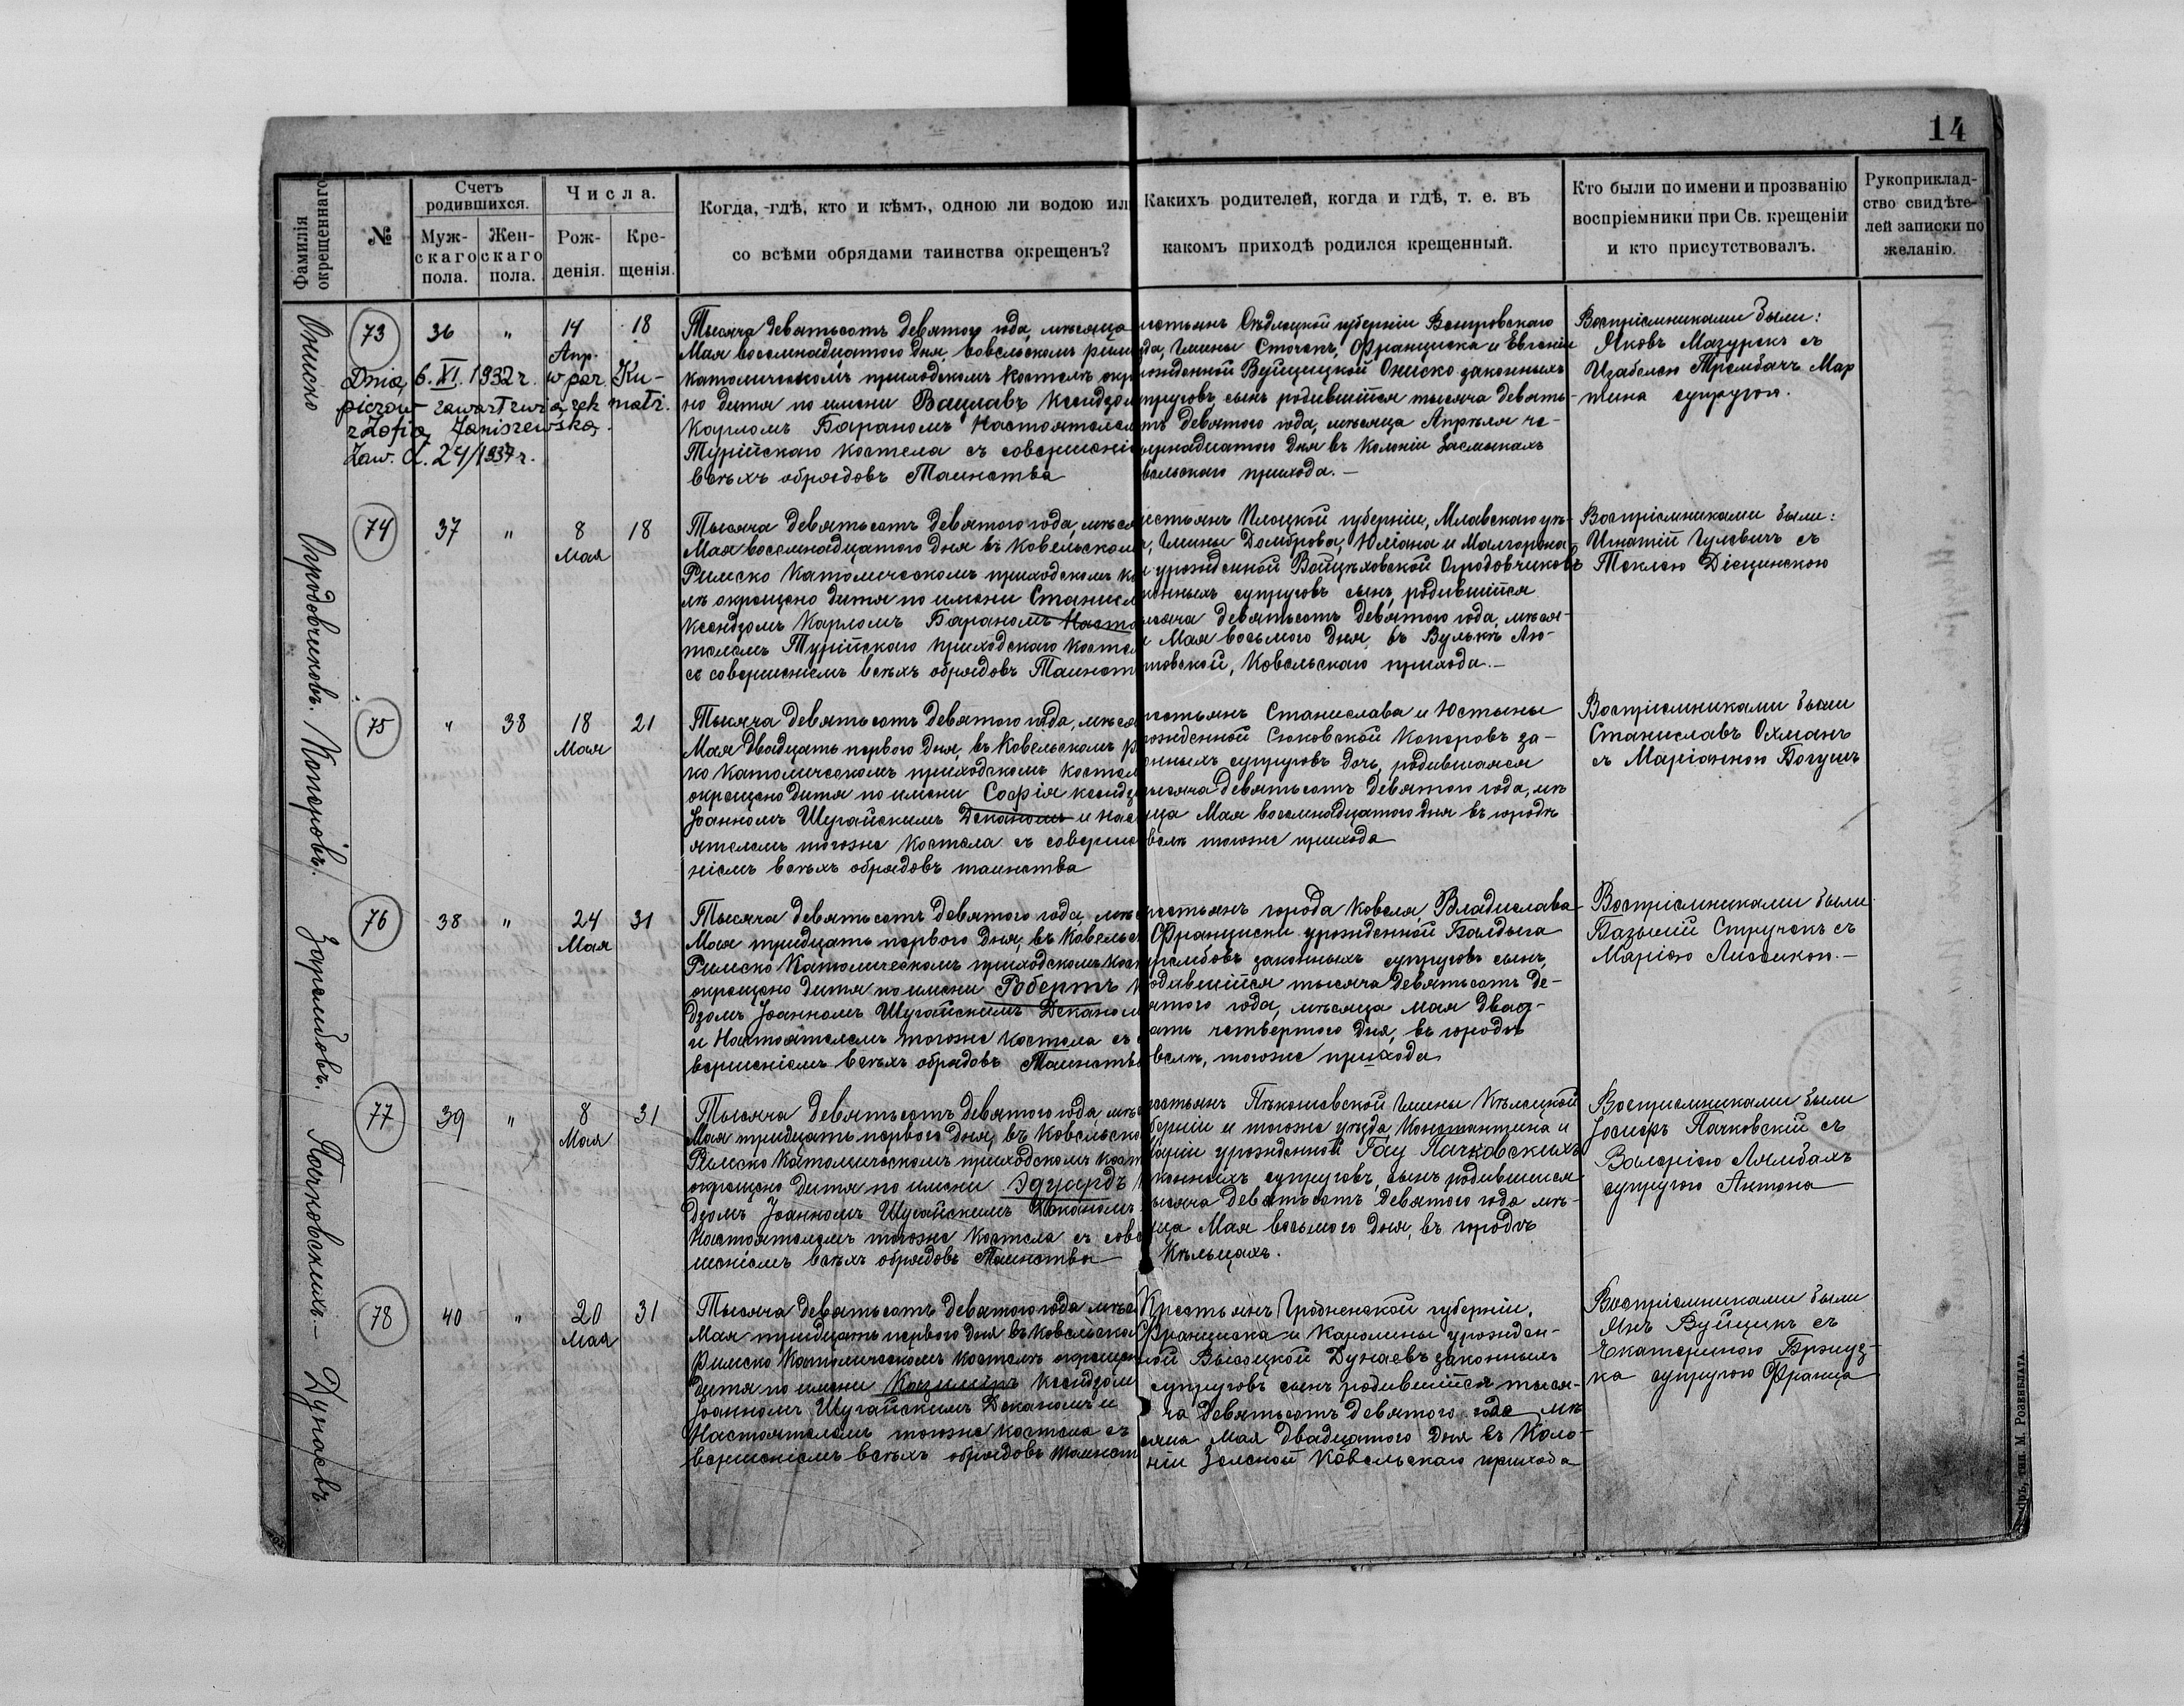 14
Фамилія
окрещеннаго
№
Счетъ
родившихся.
Муж-
скаго
пола.
Жен-
скаго
пола.
Числа.
Рож-
денія.
Кре-
щенія.
Когда, гдѣ, кто и кѣмъ, одною ли водою ил
со всѣми обрядами таинства окрещенъ?
Какихъ родителей, когда и гдѣ, т. е. въ
какомъ приходѣ родился крещенный.
Кто были по имени и прозванію
воспріемники при Св. крещеніи
и кто присутствовалъ.
Рукоприклад-
ство свидѣте-
лей записки по
желанію.
Ониско
73
36 „ 14 18
Апр.
Dnia 6. XI. 1932 r. w par. Ku-
piczów zawarł związek małż.
z Zofią Janiszewską.
Zaw. d. 24/1937 r.
Тысяча девятьсотъ девятого года, мѣсяца
Мая восемнадцатого дня, вовельскомъ рим
католическомъ приходскомъ костелѣ окр
но дитя по имени Вацлавъ Ксендзом
Карломъ Бараномъ Настоятелем
Турійскаго костела съ совершені
всѣхъ обрядовъ Таинства
рестьянъ Сѣдлецкой губерніи Венгровскаго
да, гмины Сточекъ, Франциска и Евгеніи
рожденной Вуйцицкой Ониско законныхъ
пруговъ, сынъ родившійся тысяча девять-
тъ девятого года, мѣсяца Апрѣля че-
тырнадцатого дня въ Колоніи Засмыкахъ
вельскаго прихода.—
Воспріемниками были:
Яковъ Мазурекъ съ
Изабелею Трембачъ Мар
тина супругою.
Огродовчиковъ.
74
37 „ 8 18
Мая
Тысяча девятьсотъ девятого года, мѣся
Мая восемнадцатого дня въ Ковельском
Римско Католическомъ приходскомъ ко
лѣ окрещено дитя по имени Станисл
Ксендзомъ Карломъ Бараномъ Насто
телемъ Турійскаго приходскаго костел
съ совершеніемъ всѣхъ обрядовъ Таинст
рестьянъ Плоцкой губерніи, Млавскаго уѣ-
, гмины Домброва, Юліана и Малгоржа-
ы урожденной Войцѣховской Огродовчиковъ
конныхъ супруговъ сынъ, родившійся
ысяча девятьсотъ девятого года, мѣся-
а Мая восьмого дня, въ Вулькѣ Лю-
товской, Ковельскаго прихода.—
Воспріемниками были:
Игнатій Гулевичъ съ
Теклею Дісцинскою
Копоровъ.
75
„ 38 18 21
Мая
Тысяча девятьсотъ девятого года, мѣся
Мая двадцать перваго дня, въ Ковельскомъ р
ко Католическомъ приходскомъ костел
окрещено дитя по имени Софія ксендз
Іоанномъ Шугайскимъ Деканомъ и Нас
ятелемъ тогоже Костела съ соверше
ніемъ всѣхъ обрядовъ таинства
рестьянъ Станислава и Юстыны
рожденной Сюковской Копоровъ за-
онныхъ супруговъ дочь, родившаяся
тысяча девятьсотъ девятого года, мѣ
яца Мая восемнадцатого дня въ городѣ
велѣ тогоже прихода
Воспріемниками были
Станиславъ Охманъ
съ Маріанною Богушъ
Зарембовъ.
76
38 „ 24 31
Мая
Тысяча девятьсотъ девятого года, мѣс
Мая тридцать перваго дня, въ Ковельс
Римско Католическомъ приходскомъ кост
окрещено дитя по имени Робертъ К
дзомъ Іоанномъ Шугайскимъ Деканом
и Настоятелемъ тогоже Костела съ с
вершеніемъ всѣхъ обрядовъ Таинств
рестьянъ города Ковеля, Владислава
Франциски урожденной Балдыга
арембовъ законныхъ супруговъ сынъ,
одившійся тысяча девятьсотъ де-
ятого года, мѣсяца мая двад-
ать четвертого дня, въ городѣ
велѣ, тогоже прихода
Воспріемниками были
Базылій Стручокъ съ
Маріею Лисецкою.—
Пачковскихъ.—
77
39 „ 8 31
Мая
Тысяча девятьсотъ девятого года мѣс
Мая тридцать перваго дня, въ Ковельско
Римско Католическомъ приходскомъ кост
окрещено дитя по имени Эдуардъ
дзомъ Іоанномъ Шугайскимъ Деканомъ
Настоятелемъ тогоже Костела съ сове
шеніемъ всѣхъ обрядовъ Таинства
рестьянъ Пѣкошевской гмины Кѣлецкой
берніи и тогоже уѣзда, Константина и
аріи урожденной Гац Пачковскихъ
конныхъ супруговъ, сынъ родившійся
ысяча девятьсотъ девятого года мѣ-
яца Мая восьмого дня, въ городѣ
Кѣльцахъ.
Воспріемниками были
Іосифъ Пачковскій съ
Валеріею Лямбахъ
супругою Антона
Дунаевъ.
78
40 „ 20 31
Мая
Тысяча девятьсотъ девятого года мѣс
Мая тридцать перваго дня въ Ковельско
Римско Католическомъ костелѣ окрещен
дитя по имени Казиміръ ксендзом
Іоанномъ Шугайскимъ Деканомъ и
Настоятелемъ тогоже Костела съ
вершеніемъ всѣхъ обрядовъ Таинст
Крестьянъ Гродненской губерніи,
Франциска и Каролины урожден-
ной Высоцкой Дунаевъ законныхъ
супруговъ сынъ родившійся тыся-
ча девятьсотъ девятого года мѣ
сяца Мая двадцатого дня въ Коло-
ніи Зеленой Ковельскаго прихода
Воспріемниками были
Янъ Вуйцикъ съ
Екатериною Брэнуз-
ка супругою Франца
тип. М. Розенблата.